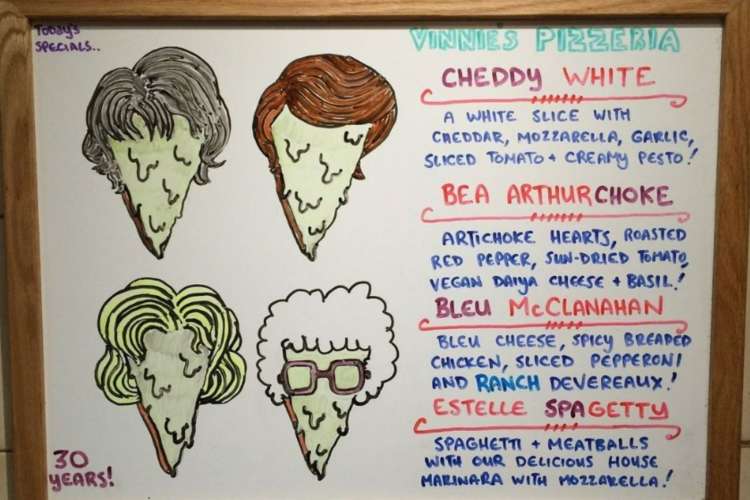 Today's
SPECIALS..
VINNIES PIZZERIA
CHEDDY WHITE
A WHITE SLICE WITH
CHEDDAR, MOZZARELLA, GARLIC,
SLICED TOMATO + CREAMY PESTO!
BEA ARTHURCHOKE
ARTICHOKE HEARTS, ROASTED
RED PEPPER, SUN-DRIED TOMATO,
VEGAN DAIYA CHEESE + BASIL!
BLEU McCLANAHAN
BLEU CHEESE, SPICY BREADED
CHICKEN, SLICED PEPPERONI
AND RANCH DEVEREAUX!
ESTELLE SPAGETTY
SPAGHETTI + MEATBALLS
WITH OUR DELICIOUS HOUSE
MARINARA WITH MOZZARELLA!
30
YEARS!